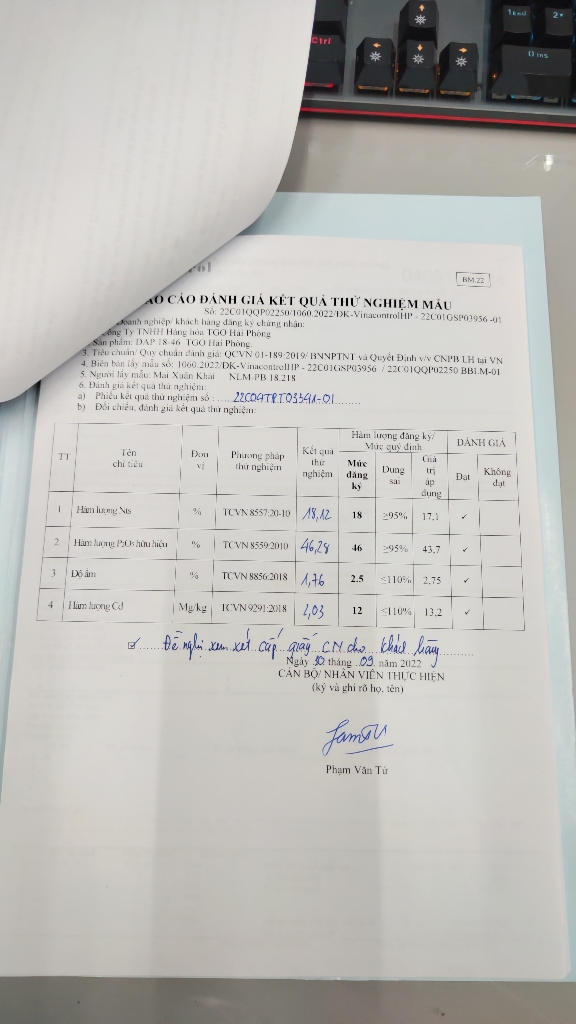 Ctrl
1 End
2
0 Ins
BM.22
CÁO ĐÁNH GIÁ KẾT QUẢ THỬ NGHIỆM MẪU
Số: 22C01QQP02250/1060.2022/ĐK-VinacontrolHP - 22C01GSP03956 -01
Doanh nghiệp/ khách hàng đăng ký chứng nhận:
Công Ty TNHH Hàng hóa TGO Hải Phòng
Sản phẩm: DAP 18-46 TGO Hải Phòng.
3. Tiêu chuẩn/ Quy chuẩn đánh giá: QCVN 01-189:2019/ BNNPTNT và Quyết Định v/v CNPB LH tại VN
4. Biên bản lấy mẫu số: 1060.2022/ĐK-VinacontrolHP - 22C01GSP03956 / 22C01QQP02250 BB1.M-01
5. Người lấy mẫu: Mai Xuân Khải NLM-PB 18.218
6. Đánh giá kết quả thử nghiệm:
a) Phiếu kết quả thử nghiệm số : 22C04TPT03341-01
b) Đối chiếu, đánh giá kết quả thử nghiệm:
TT Tên chỉ tiêu Đơn vị Phương pháp thử nghiệm Kết quả thử nghiệm Hàm lượng đăng ký/ Mức quy định ĐÁNH GIÁ
Mức đăng ký Dung sai Giá trị áp dụng Đạt Không đạt
1 Hàm lượng Nts % TCVN 8557:20-10 18,12 18 ≥95% 17,1 ✓
2 Hàm lượng P₂O₅ hữu hiệu % TCVN 8559:2010 46,28 46 ≥95% 43,7 ✓
3 Độ ẩm % TCVN 8856:2018 1,76 2.5 ≤110% 2,75 ✓
4 Hàm lượng Cd Mg/kg TCVN 9291:2018 2,03 12 ≤110% 13,2 ✓
☑ Đề nghị xem xét cấp giấy CN cho khách hàng
Ngày 30 tháng 09 năm 2022
CÁN BỘ/ NHÂN VIÊN THỰC HIỆN
(ký và ghi rõ họ, tên)
Phạm Văn Tứ